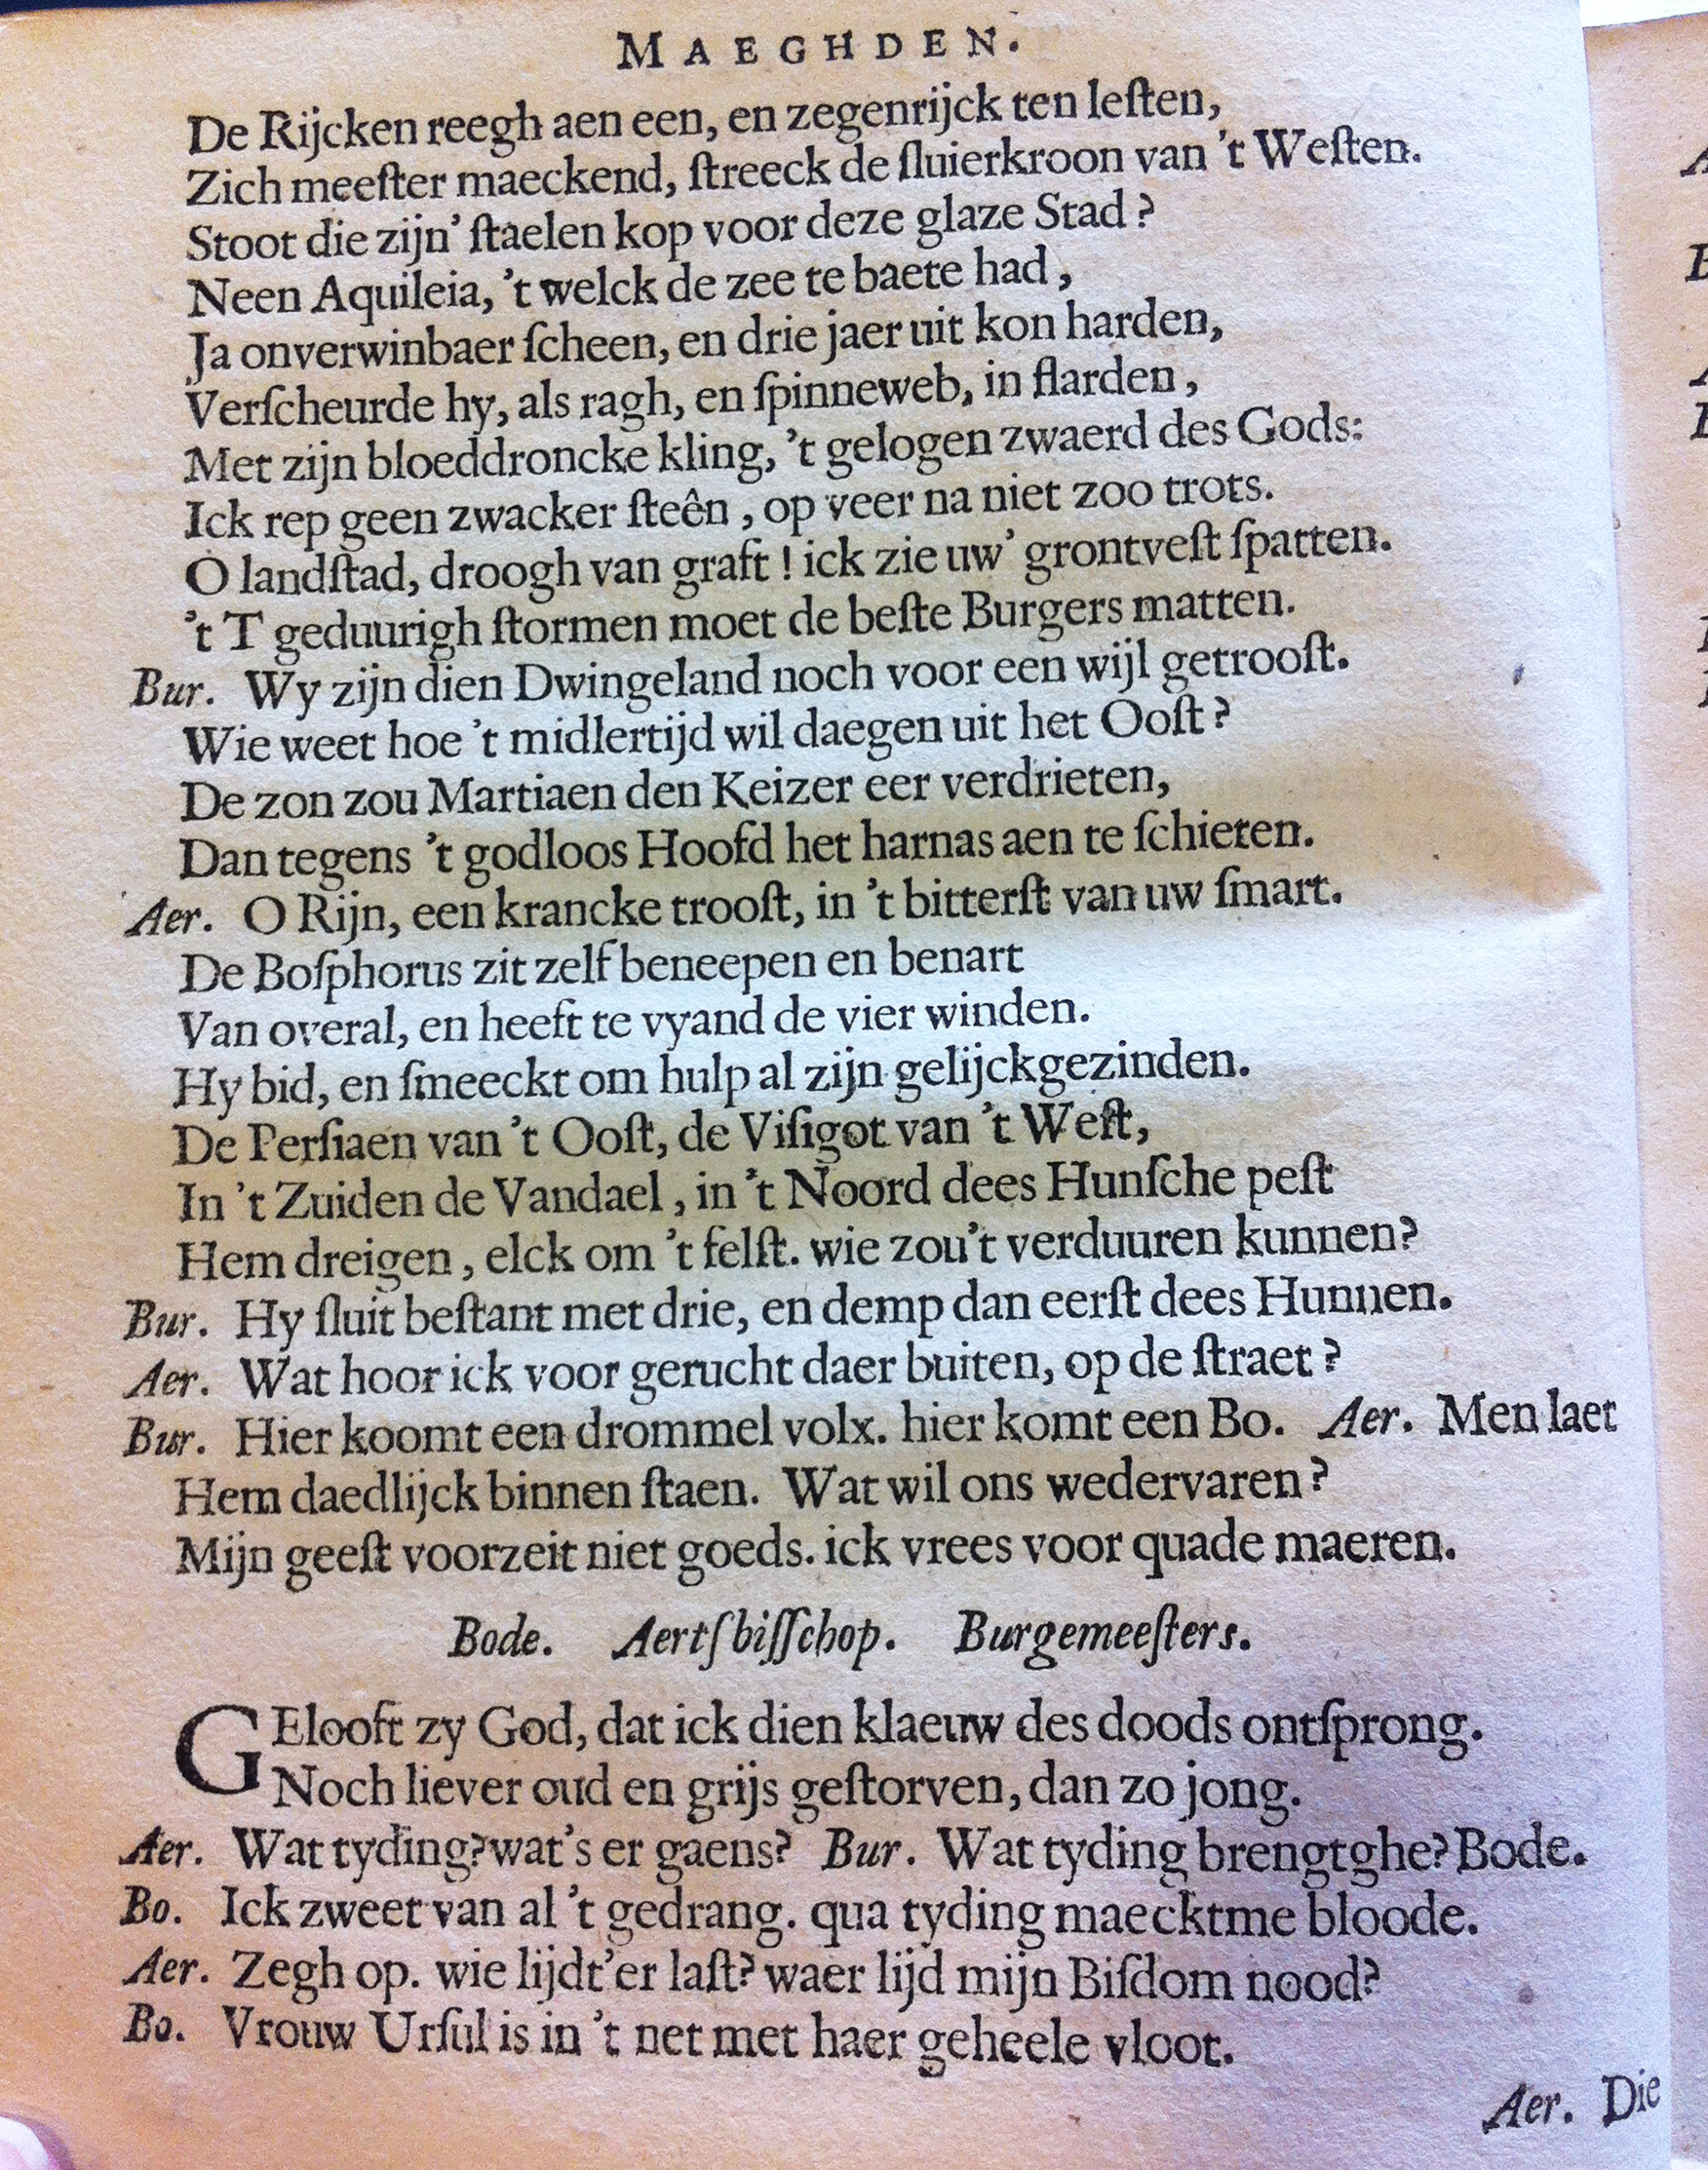 MAEGHDEN.
De Rijcken reegh aen een, en zegenrijck ten leſten,
Zich meeſter maeckend, ſtreeck de ſluierkroon van 't Weſten.
Stoot die zijn' ſtaelen kop voor deze glaze Stad?
Neen Aquileia, 't welck de zee te baete had,
Ja onverwinbaer ſcheen, en drie jaer uit kon harden,
Verſcheurde hy, als ragh, en ſpinneweb, in flarden,
Met zijn bloeddroncke kling, 't gelogen zwaerd des Gods:
Ick rep geen zwacker ſteên, op veer na niet zoo trots.
O landſtad, droogh van graft! ick zie uw' grontveſt ſpatten.
't T geduurigh ſtormen moet de beſte Burgers matten.
Bur. Wy zijn dien Dwingeland noch voor een wijl getrooſt.
Wie weet hoe 't midlertijd wil daegen uit het Ooſt?
De zon zou Martiaen den Keizer eer verdrieten,
Dan tegens 't godloos Hoofd het harnas aen te ſchieten.
Aer. O Rijn, een krancke trooſt, in 't bitterſt van uw ſmart.
De Boſphorus zit zelf beneepen en benart
Van overal, en heeft te vyand de vier winden.
Hy bid, en ſmeeckt om hulp al zijn gelijckgezinden.
De Perſiaen van 't Ooſt, de Viſigot van 't Weſt,
In 't Zuiden de Vandael, in 't Noord dees Hunſche peſt
Hem dreigen, elck om 't felſt. wie zou't verduuren kunnen?
Bur. Hy ſluit beſtant met drie, en demp dan eerſt dees Hunnen.
Aer. Wat hoor ick voor gerucht daer buiten, op de ſtraet?
Bur. Hier koomt een drommel volx. hier komt een Bo. Aer. Men laet
Hem daedlijck binnen ſtaen. Wat wil ons wedervaren?
Mijn geeſt voorzeit niet goeds. ick vrees voor quade maeren.
Bode. Aertſbiſſchop. Burgemeeſters.
GElooft zy God, dat ick dien klaeuw des doods ontſprong.
Noch liever oud en grijs geſtorven, dan zo jong.
Aer. Wat tyding? wat's er gaens? Bur. Wat tyding brengtghe? Bode.
Bo. Ick zweet van al 't gedrang. qua tyding maecktme bloode.
Aer. Zegh op. wie lijdt'er laſt? waer lijd mijn Biſdom nood?
Bo. Vrouw Urſul is in 't net met haer geheele vloot.
Aer. Die